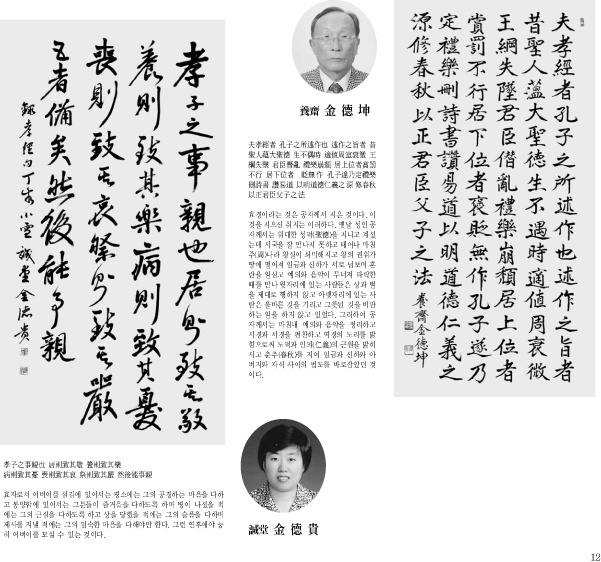 孝子之事親也居則致其敬
養則致其樂病則致其憂
喪則致其哀祭則致其嚴
五者備矣然後能事親
錄孝經句丁亥小雪 誠堂金德貴
孝子之事親也 居則致其敬 養則致其樂
病則致其憂 喪則致其哀 祭則致其嚴 然後能事親
효자로서 어버이를 섬김에 있어서는 평소에는 그의 공경하는 마음을 다하
고 봉양함에 있어서는 그분들이 즐거움을 다하도록 하며 병이 나셨을 적
에는 그의 근심을 다하도록 하고 상을 당했을 적에는 그의 슬픔을 다하며
제사를 지낼 적에는 그의 엄숙한 마음을 다해야만 한다. 그런 연후에야 능
히 어버이를 모실 수 있는 것이다.
養齋 金德坤
夫孝經者 孔子之所述作也 述作之旨者 昔
聖人蘊大聖德 生不偶時 適値周室衰微 王
綱失墜 君臣僭亂 禮樂崩頹 居上位者賞罰
不行 居下位者 貶無作 孔子遂乃定禮樂
刪詩書 讚易道 以明道德仁義之源 修春秋
以正君臣父子之法
효경이라는 것은 공자께서 지은 것이다. 이
것을 지으신 취지는 이러하다. 옛날 성인공
자께서는 위대한 성덕(聖德)을 지니고 계셨
는데 시국을 잘 만나지 못하고 태어나 마침
주(周)나라 왕실이 쇠미해지고 왕의 권위가
땅에 떨어져 임금과 신하가 서로 넘보며 혼
란을 일삼고 예의와 음악이 무너져 타락한
때를 만나 윗자리에 있는 사람들은 상과 벌
을 제대로 행하지 않고 아랫자리에 있는 사
람은 올바른 것을 기리고 그릇된 것을 비판
하는 일을 하지 않고 있었다. 그리하여 공
자께서는 마침내 예의와 음악을 정리하고
시경과 서경을 편찬하고 역경의 도리를 밝
힘으로써 도덕과 인의(仁義)의 근원을 밝히
시고 춘추(春秋)를 지어 임금과 신하와 아
버지와 자식 사이의 법도를 바로잡았던 것
이다.
誠堂 金德貴
夫孝經者孔子之所述作也述作之旨者
昔聖人蘊大聖德生不遇時適値周衰微
王綱失墜君臣僭亂禮樂崩頹居上位者
賞罰不行居下位者褒貶無作孔子遂乃
定禮樂刪詩書讚易道以明道德仁義之
源修春秋以正君臣父子之法 養齋金德坤
12